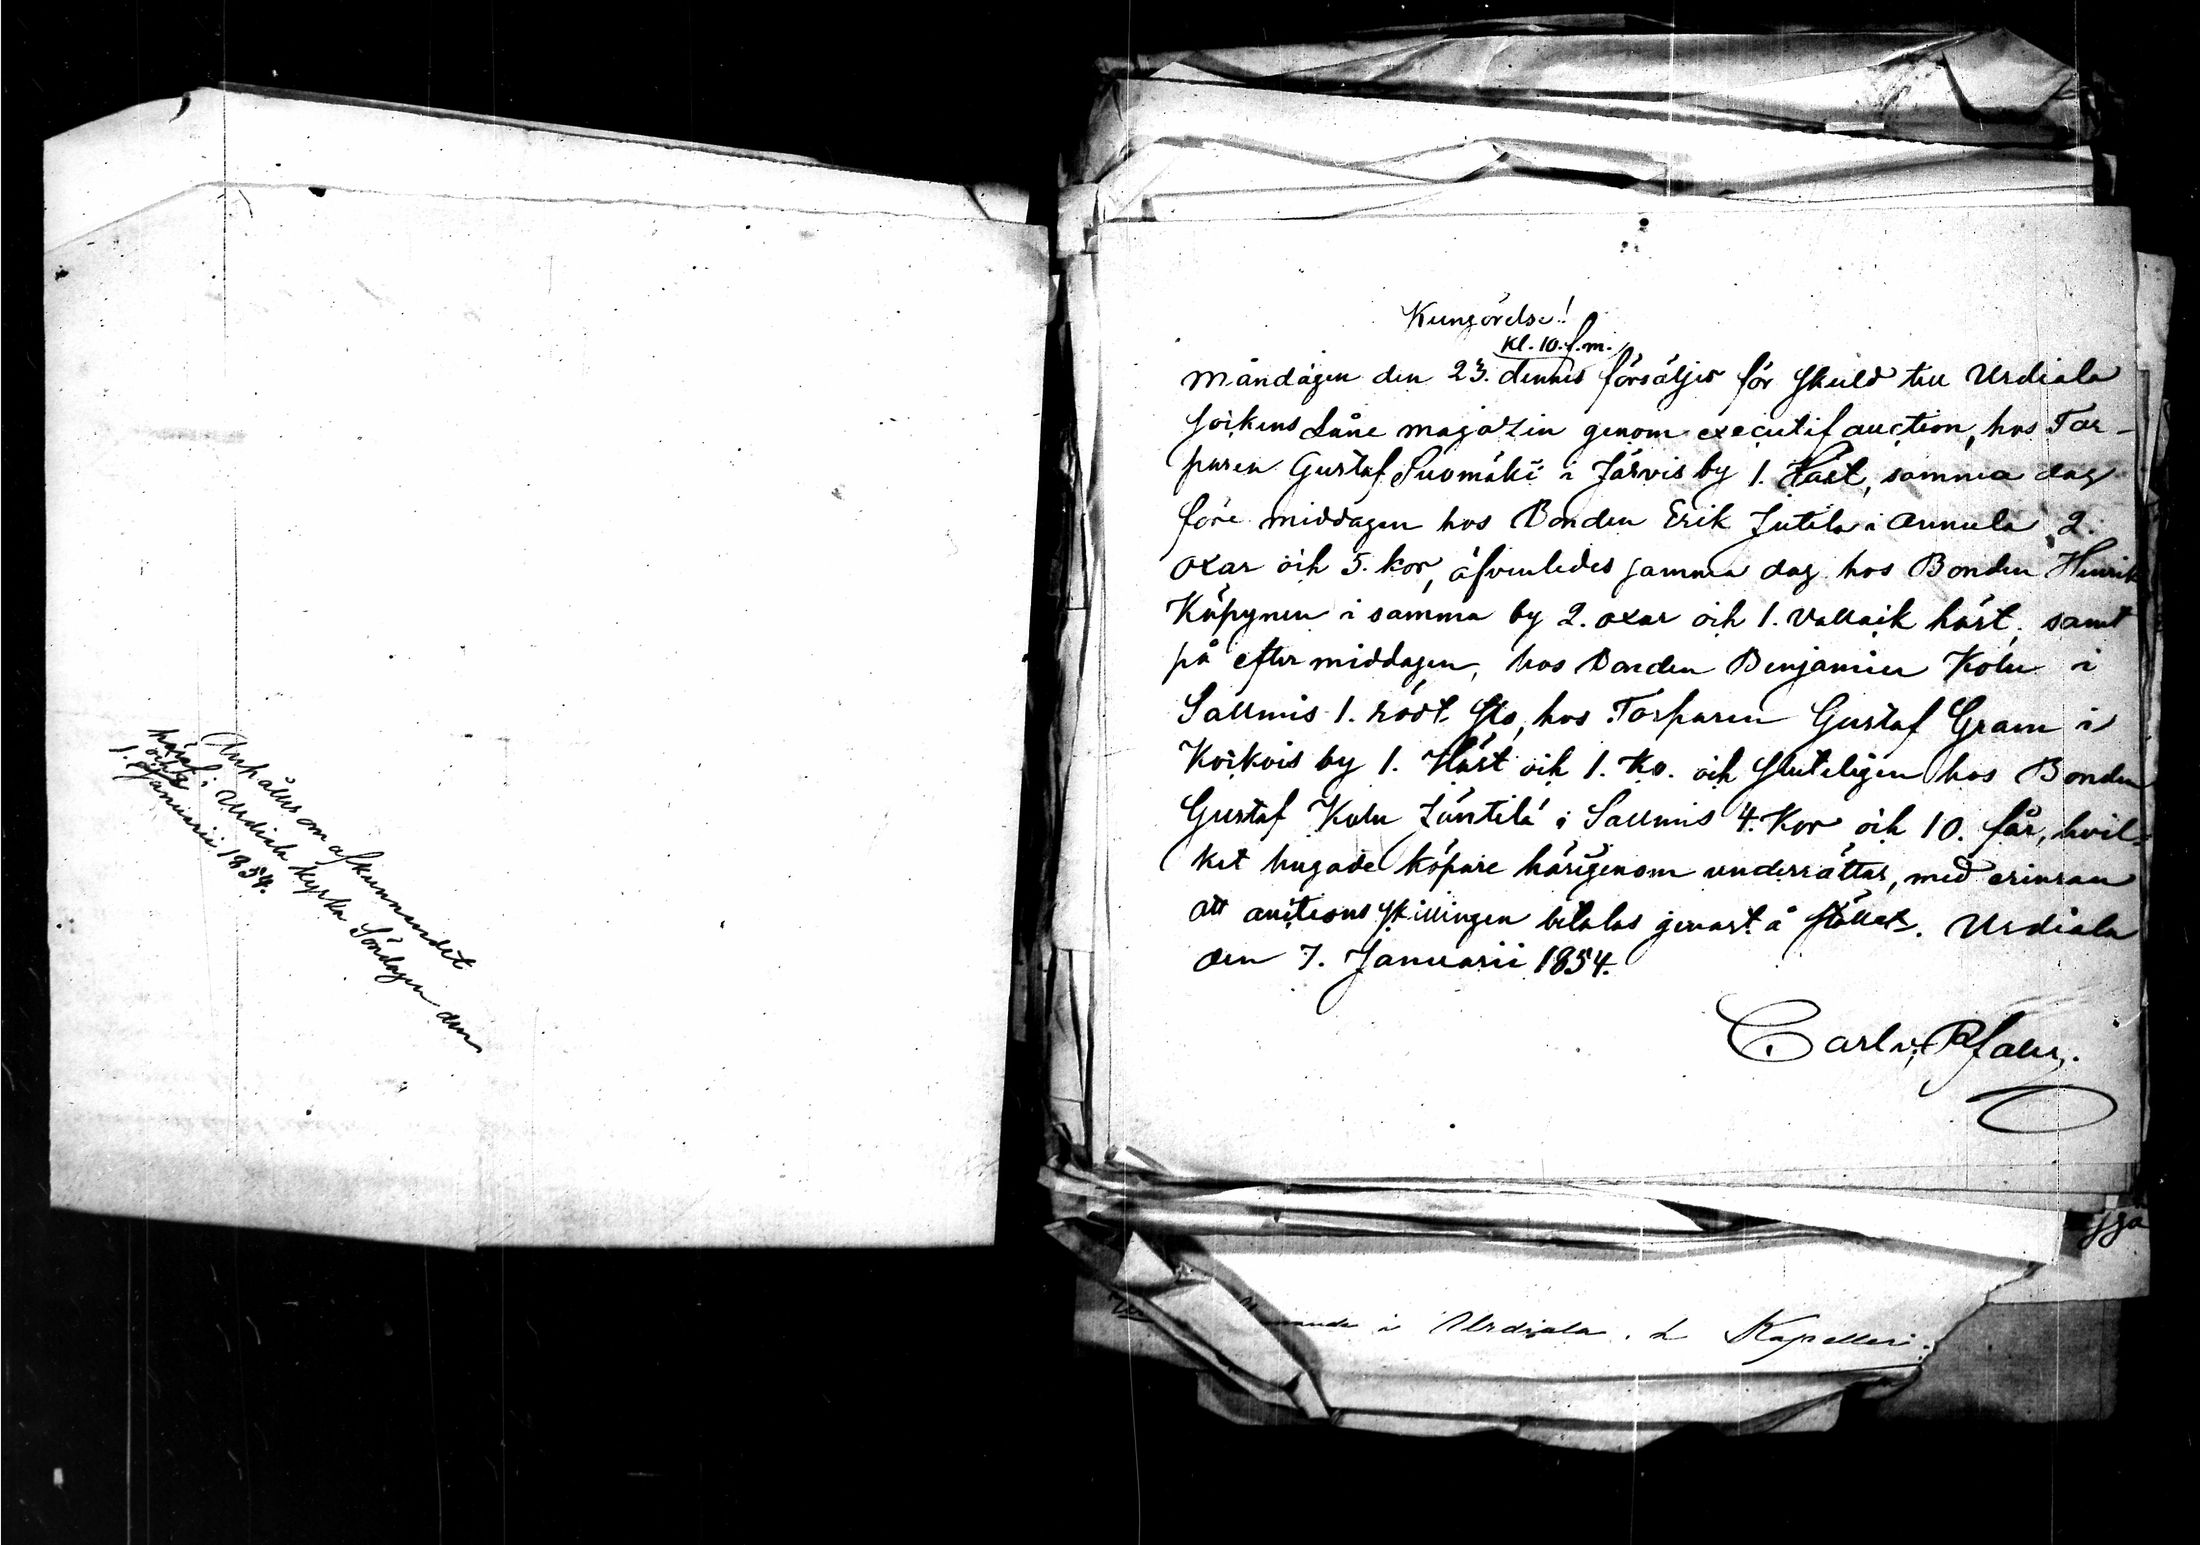 Anhålles om afkunnandet
häraf i Urdiala kyrka Söndagen den
1. Januarii 1854.
Kungörelse!
kl. 10. f.m.
Måndagen den 23. dennes försäljes för skuld till Urdiala
sockens Låne magazin genom executif auction, hos Tor-
paren Gustaf Suomäki i Järvis by 1. Häst, samma dag
före middagen hos Bonden Erik Jutila i Annula 2.
oxar och 5. kor, äfvenledes samma dag hos Bonden Henrik
Käpynen i samma by 2. oxar och 1. vallack häst, samt
på eftermiddagen, hos Bonden Benjamin Kolu i
Sallmis 1. rödt sto, hos Torparen Gustaf Gram i
Koikois by 1. Häst och 1. Ko. och sluteligen hos Bonden
Gustaf Kolu Jäntilä i Sallmis 4. Kor och 10. får, hvil-
ket hugade köpare härigenom underrättas, med erinran
att auctions skillingen betalas genast å stället. Urdiala
den 7. Januarii 1854.
Carl
i Urdiala. Kapelleri.